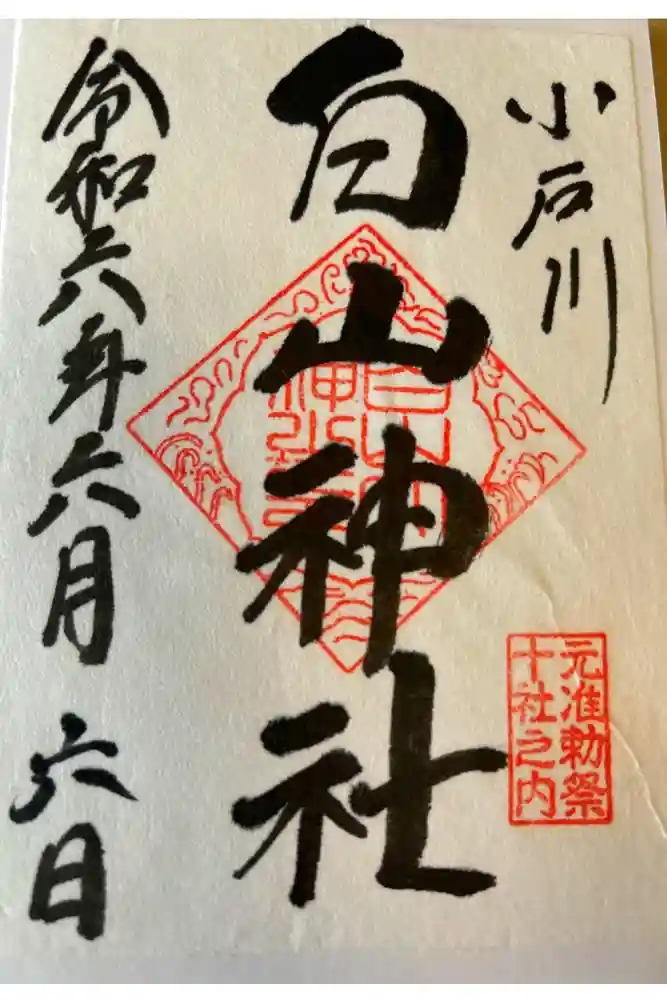 小石川
白山神社
元准勅祭
十社之内
令和六年六月六日